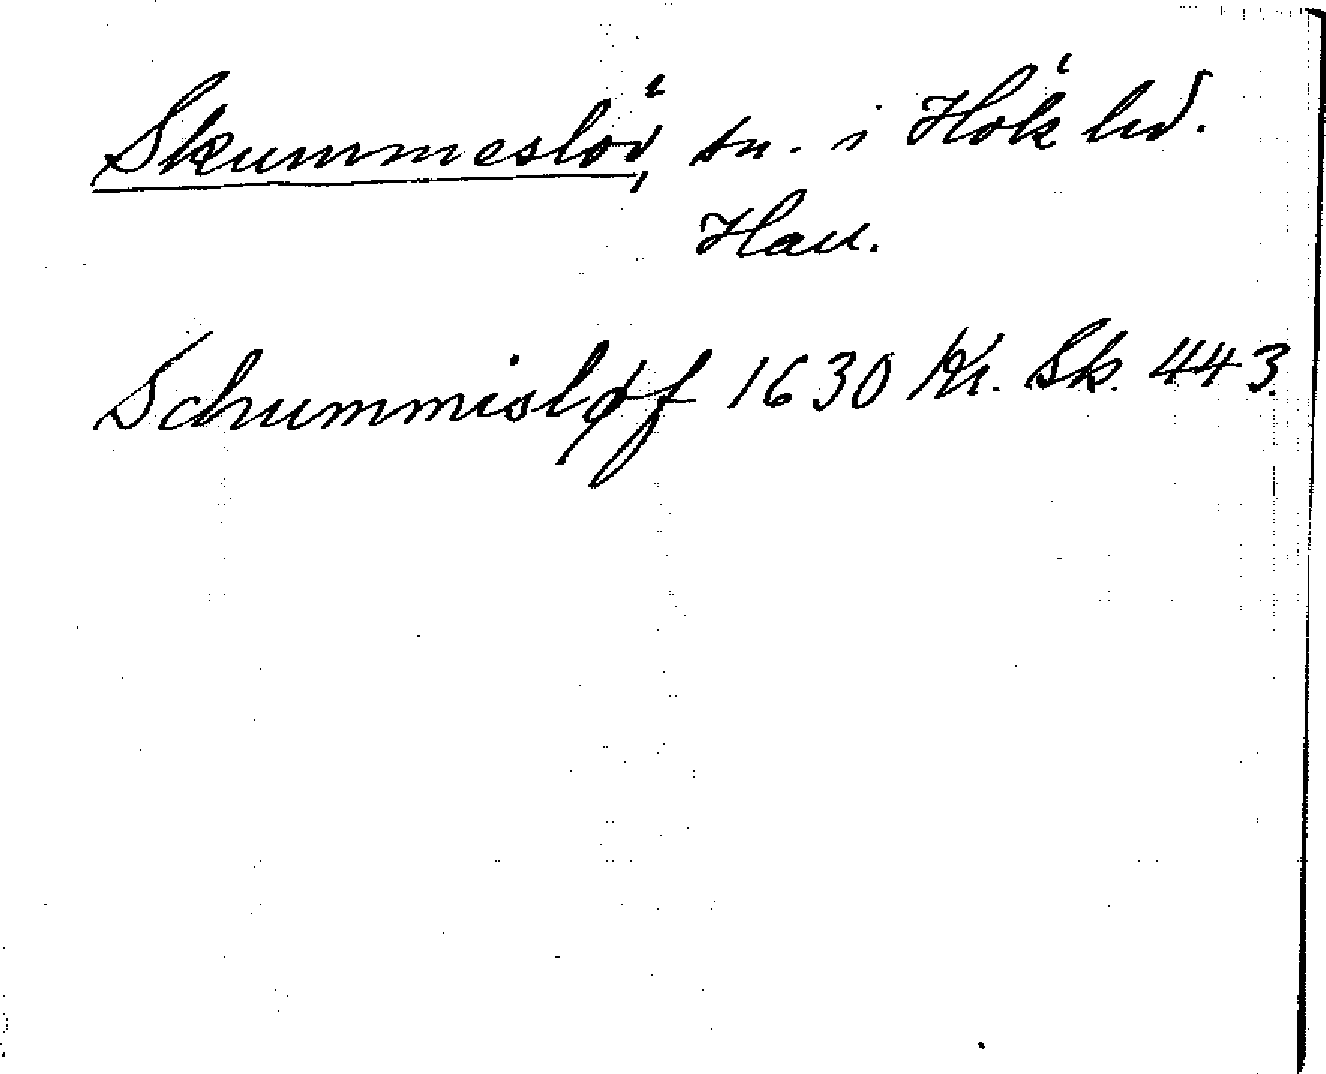 Skummeslöv, sn. i Höks hd.
Hall.
Schummisløf 1630 Kr. Sk. 443.